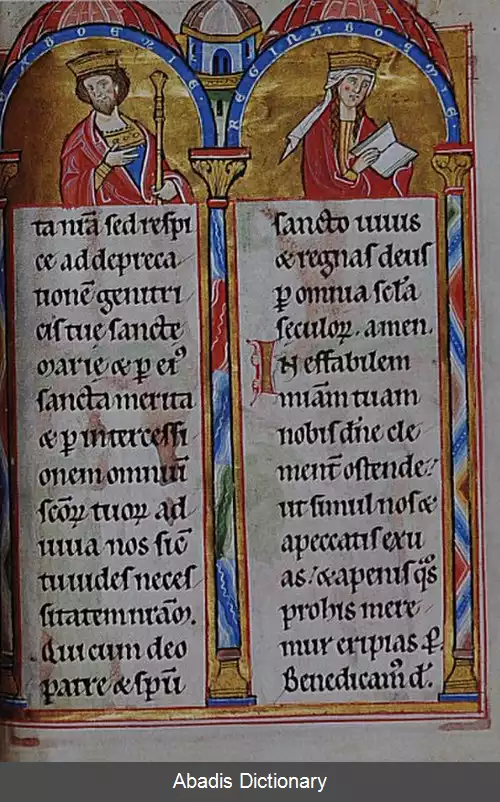 X BOEMIE
REGINA BOEMIE
tanıā sed respi
ce ad depreca
tionē genitri
cis tue sancte
Marie & ꝑ eiꝰ
sancta merita
& ꝑ intercessi
onem omniū
scōꝝ tuoꝝ ad
iuua nos sic̄
tu uides neces
sitatem nrām.
Qui cum deo
patre & spū
sancto uiuis
& regnas deus
ꝑ omnia scl̄a
seculoꝝ. amen.
Ineffabilem
miām tuam
nobis dn̄e cle
ment̄ ostende:
ut simul nos &
a peccatis exu
as: & a penis q̄s
pro his mere
mur eripias ꝑ.
Benedicamꝰ d̄.
Abadis Dictionary